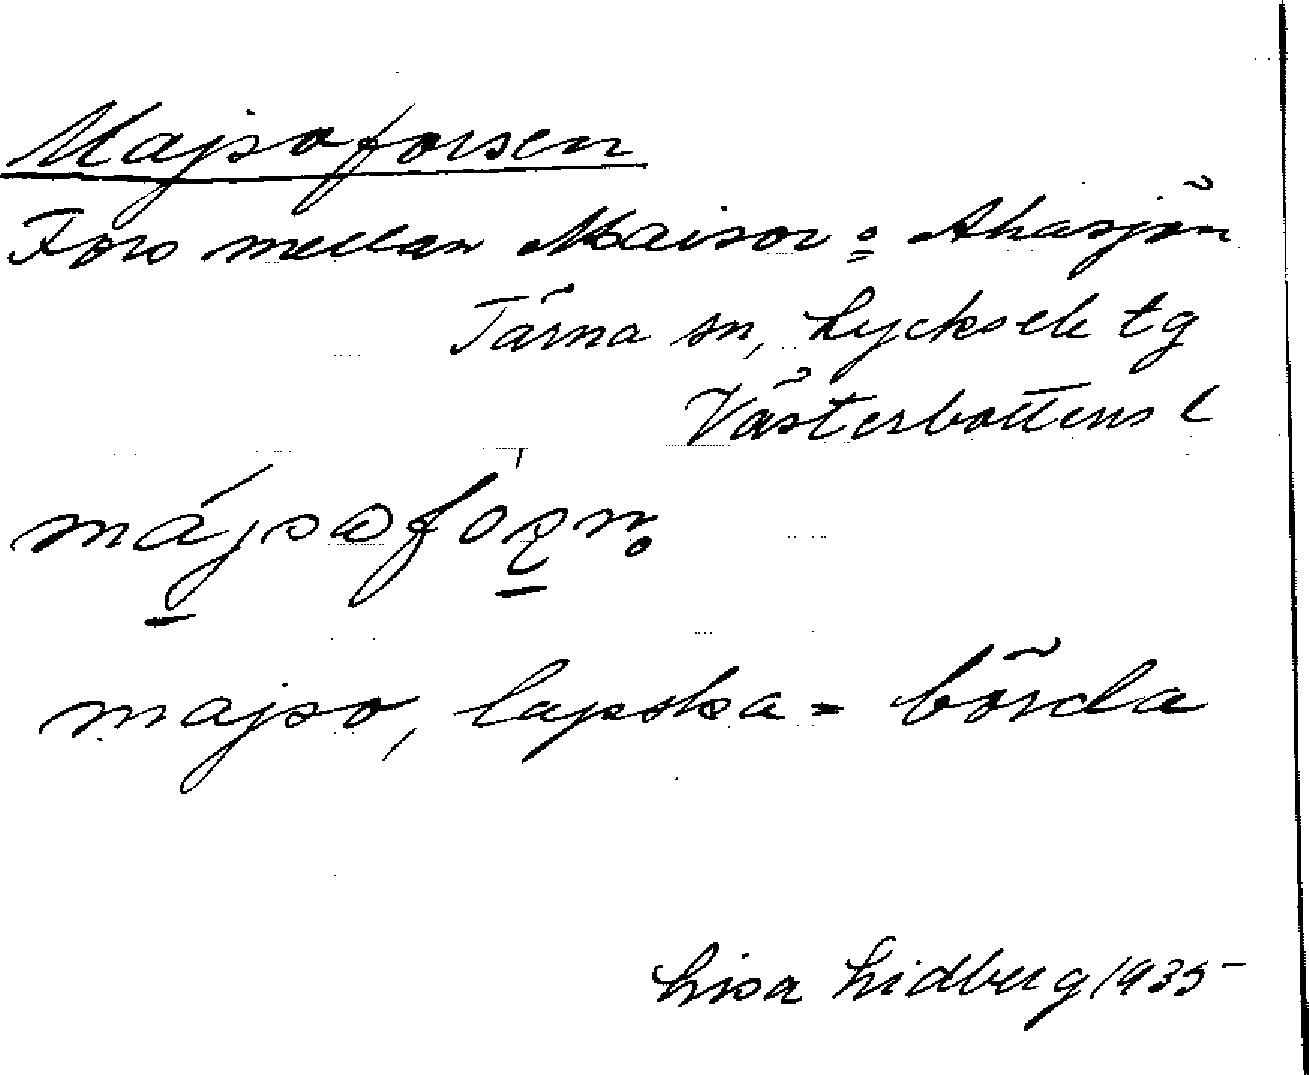 Majsoforsen
Fors mellan Maisor o Ahasjön
Tärna sn, Lycksele tg
Västerbottens l
májsofoʂn̥
majso, lapska = börda
Lisa Lidberg 1935